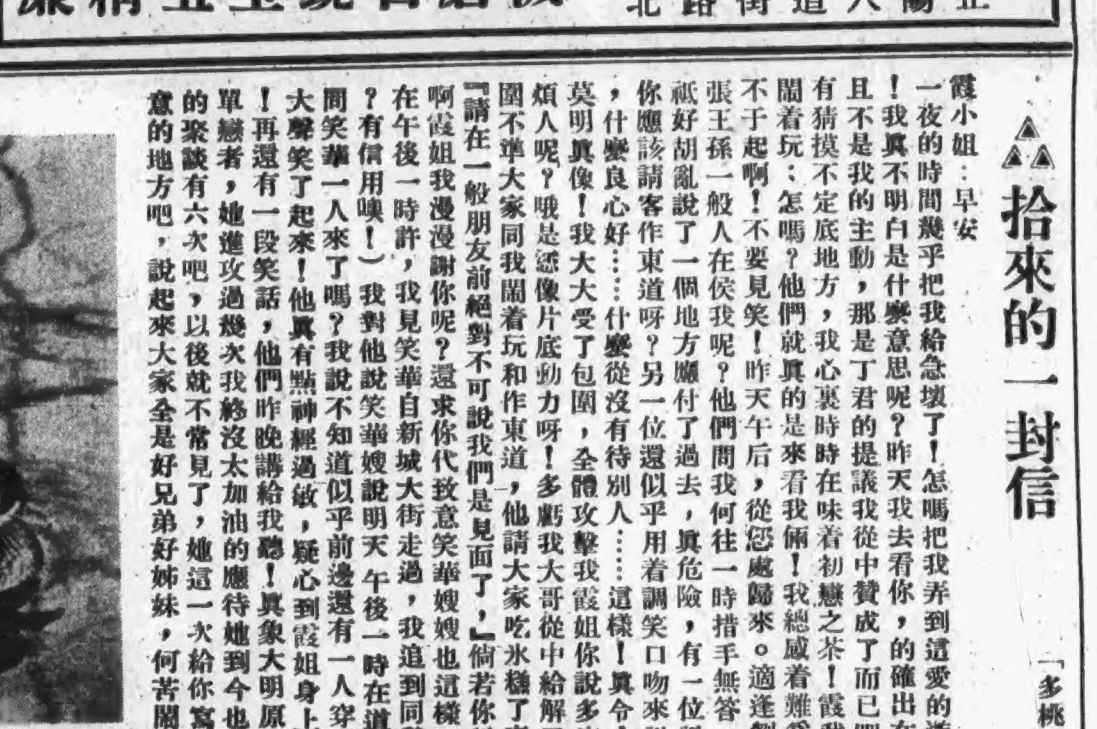 正陽八道街路北
▲▲▲拾來的一封信
「多桃
霞小姐：早安
一夜的時間幾乎把我給急壞了！怎嗎把我弄到這愛的
！我真不明白是什麼意思呢？昨天我去看你，的確出在
且不是我的主動，那是丁君的提議我從中贊成了而已
有猜摸不定底地方，我心裏時時在味着初戀之茶！霞我
鬧着玩：怎嗎？他們就真的是來看我倆！我總感着難
不于起啊！不要見笑！昨天午后，從您處歸來。適逢
張王孫一般人在侯我呢？他們問我何往一時措手無答
祗好胡亂說了一個地方應付了過去，真危險，有一位
你應該請客作東道呀？另一位還似乎用着調笑口吻來
，什麼良心好……什麼從沒有待別人……這樣！真令
莫明真像！我大大受了包圍，全體攻擊我霞姐你說多
煩人呢？哦是您像片底動力呀！多虧我大哥從中給解
圍不準大家同我鬧着玩和作東道，他請大家吃氷糕了
『請在一般朋友前絕對不可說我們是見面了，』倘若你
啊霞姐我漫漫謝你呢？還求你代致意笑華嫂嫂也這樣
在午後一時許，我見笑華自新城大街走過，我追到同
？有信用噢！）我對他說笑華嫂說明天 午後一時在道
間笑華一人來了嗎？我說不知道似乎前邊還有一人穿
大聲笑了起來！他真有點神經過敏，疑心到霞姐身上
！再還有一段笑話，他們昨晚講給我聽！真象大明原
單戀者，她進攻過幾次我終沒太加油的應待她到今也
的聚談有六次吧，以後就不常見了，她這一次給你寫
意的地方吧，說起來大家全是好兄弟好姊妹，何苦鬧